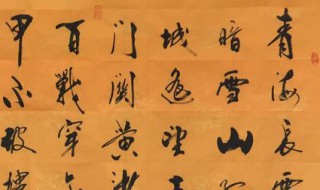 青海長雲
暗雪山
城遥望
门關黄沙
百戰穿金
甲不破樓